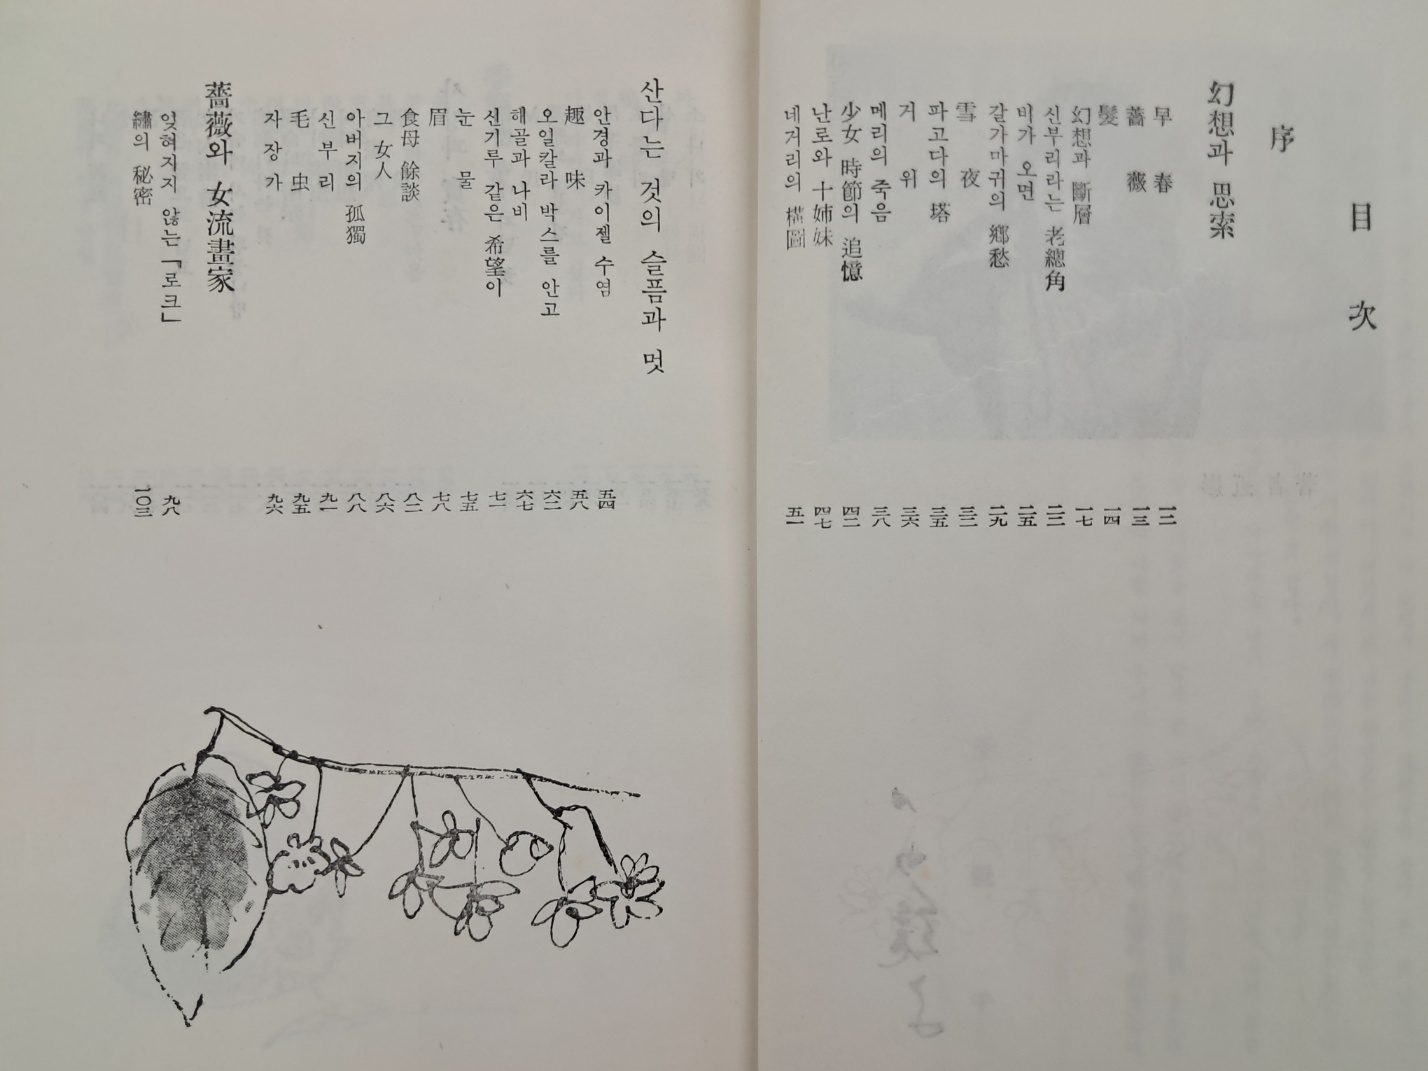 目 次
序
幻想과 思索
早 春 一二
薔 薇 一三
髮 一四
幻想과 斷層 一七
신부리라는 老總角 二二
비가 오면 二五
갈가마귀의 鄕愁 二九
雪 夜 三二
파고다의 塔 三五
거 위 三六
메리의 죽음 三八
少女 時節의 追憶 四二
난로와 十姉妹 四七
네거리의 構圖 五一
산다는 것의 슬픔과 멋
안경과 카이젤 수염 五四
趣 味 五八
오일칼라 박스를 안고 六二
해골과 나비 六七
신기루 같은 希望이 七一
눈 물 七五
眉 七八
食母 餘談 八二
그 女人 八六
아버지의 孤獨 八八
신 부 리 九一
毛 虫 九五
자 장 가 九六
薔薇와 女流畫家
잊혀지지 않는「로크」 九八
繡의 秘密 一〇三